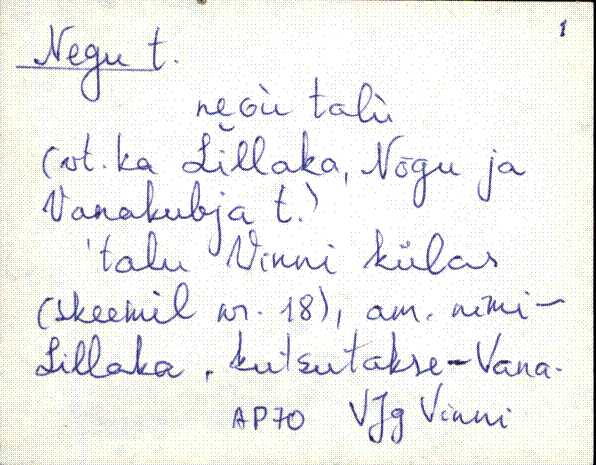 1
Negu t.
negù talù
(vt. ka Lillaka, Nõgu ja
Vanakubja t.)
'talu Vinni külas
(skeemil nr. 18), am. nimi-
Lillaka, kutsutakse-Vana-
AP70 VJg Vinni